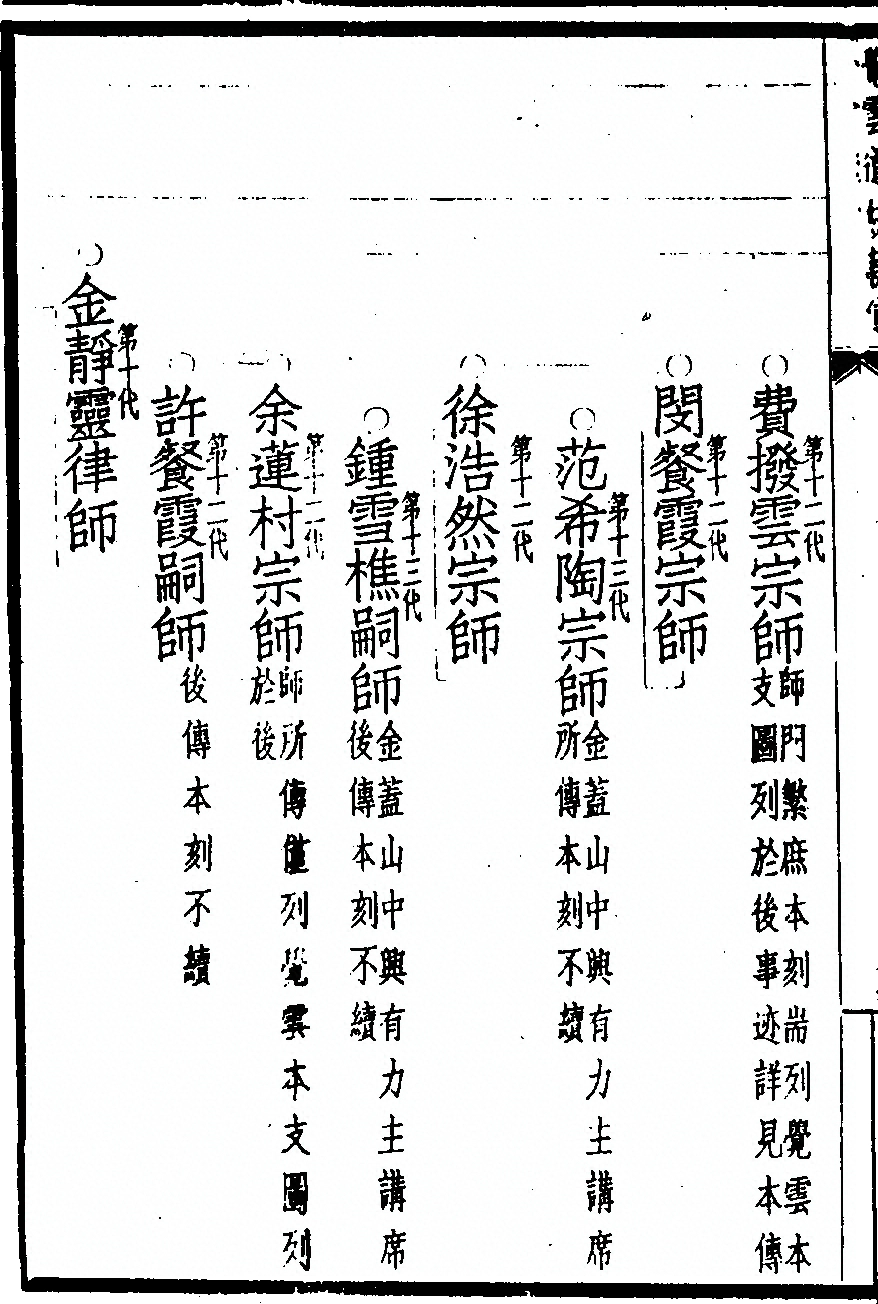 第十二代
費撥雲宗師
師門繁庶本刻耑列覺雲本
支圖列於後事迹詳見本傳
第十二代
閔餐霞宗師
第十三代
范希陶宗師
金蓋山中興有力主講席
所傳本刻不續
第十二代
徐浩然宗師
第十三代
鍾雪樵嗣師
金蓋山中興有力主講席
後傳本刻不續
第十二代
余蓮村宗師
師所傳僅列覺雲本支圖列
於後
第十二代
許餐霞嗣師
後傳本刻不續
第十代
金靜靈律師